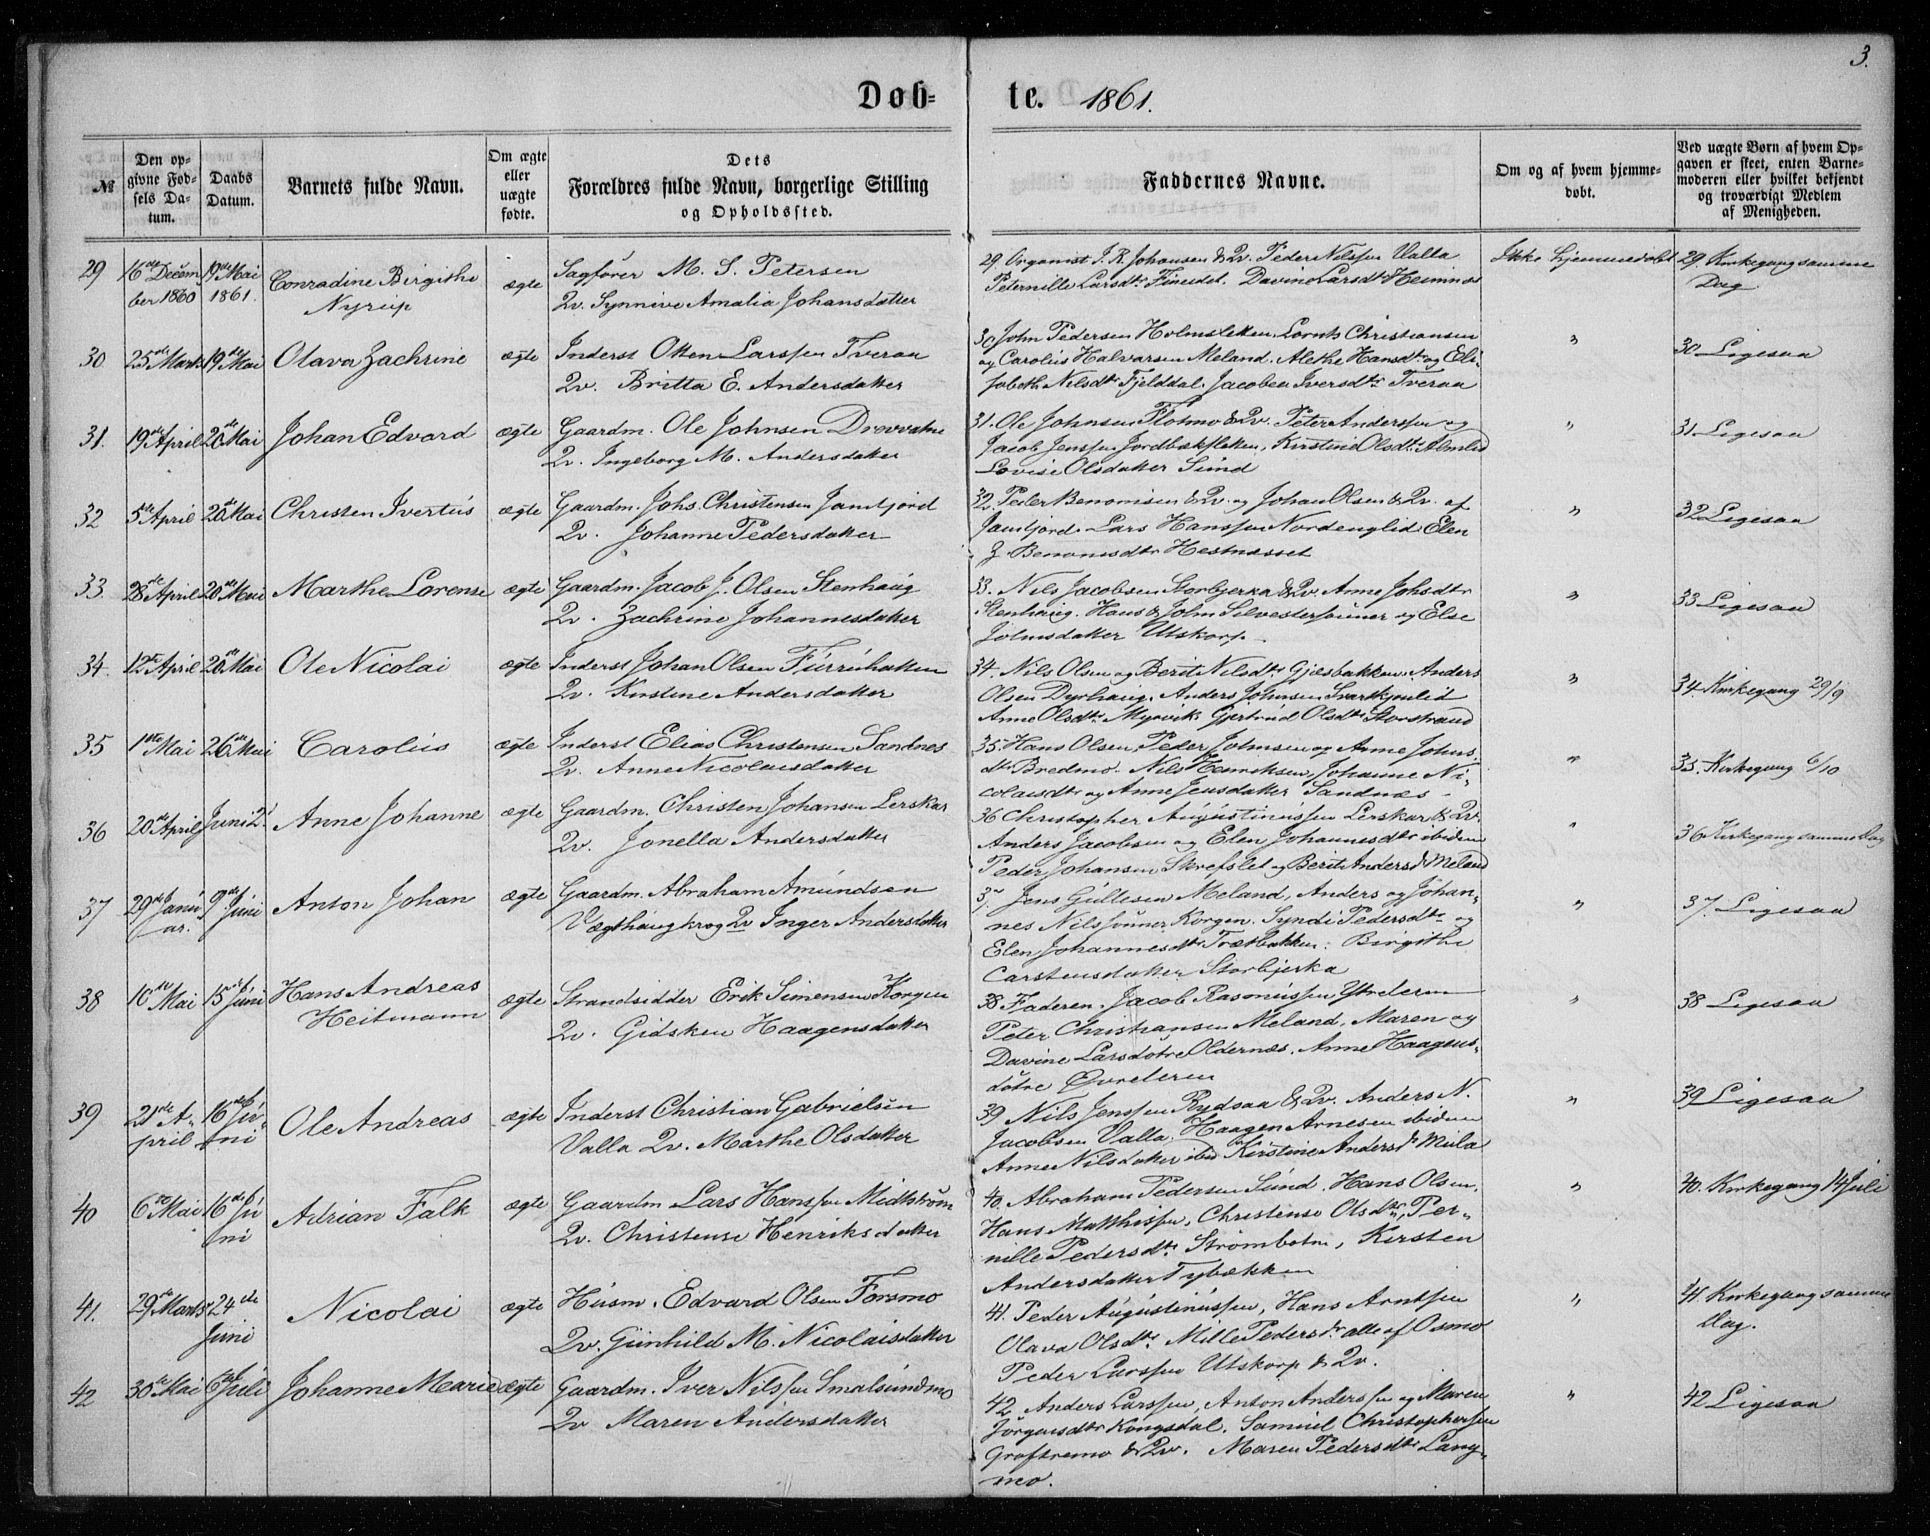 3.
Døb-te. 1861.
№ | Den opgivne Fødsels Datum. | Daabs Datum. | Barnets fulde Navn. | Om ægte eller uægte fødte. | Dets Forældres fulde Navn, borgerlige Stilling og Opholdssted. | Faddernes Navne. | Om og af hvem hjemmedøbt. | Ved uægte Børn af hvem Opgaven er skeet, enten Barnemoderen eller hvilket bekjendt og troværdigt Medlem af Menigheden.
29 | 16de Decem
ber 1860 | 19de Mai
1861. | Conradine Birgithe
Nyrup | ægte | Sagfører M. S. Petersen
Qv. Synnive Amalia Johansdatter | 29. Organist J. R. Johansen & Qv. Peder Nilssen Valla
Peternille Larsdtr Fineidet. Davina Larsdtr Heimnæs | Ikke hjemmedøbt | 29. Kirkegang samme
Dag
30 | 25de Marts | 19de Mai | Olava Zachrine | ægte | Inderst Otten Larssen Tveraa
Qv. Britta E. Andersdatter | 30 John Pedersen Holmsletten. Lornts Christiansen
og Carolius Halvarsen Meland. Alethe Hansdtr og Eli-
sabeth Nilsdtr Fjelddal. Jacobea Iversdtr Tveraa | " | 30 Ligesaa
31. | 19de April | 20de Mai | Johan Edvard | ægte | Gaardm. Ole Johnsen Drevvatne
Qv. Ingeborg M. Andersdatter | 31. Ole Johnsen Flotmo & Qv. Peter Anderssen og
Jacob Jenssen Jordbækfletten, Kirstine Olsdtr Almlid
Lovise Olsdatter Sund | " | 31. Ligesaa
32 | 5de April | 20de Mai | Christen Ivertus | ægte | Gaardm. Johs. Christensen Jamtjord
Qv. Johanne Pedersdatter | 32. Peder Benonisen & Qv. og Johan Olsen & Qv. af
Jamtjord. Lars Hanssen Nordenglid Elen
Benonisdtr Hestnæsset | " | 32 Ligesaa
33. | 28de April | 20de Mai | Marthe Lorense | ægte | Gaardm. Jacob J. Olsen Stenhaug
Qv. Zachrine Johannesdatter | 33. Nils Jacobsen Storbjerka & Qv. Anne Johsdtr
Stenhaug. Hans & John Silvestersønner og Else
Johnsdatter Utskorp | " | 33 Ligesaa
34. | 12te April | 20de Mai | Ole Nicolai | ægte | Inderst Johan Olsen Furruhatten
Qv. Kirstine Andersdatter | 34. Nils Olsen og Berit Nilsdtr Gjæsbakken. Anders
Olsen Dyrhaug. Anders Johnsen Svartkjønlid
Anne Olsdtr Myrvik Gjertrud Olsdtr Storstrand | " | 34. Kirkegang 29/9
35 | 1ste Mai | 26de Mai | Carolius | ægte | Inderst Elias Christensen Sandnes
Qv. Anne Nicolaisdatter | 35. Hans Olsen, Peder Johnsen og Anne Johns-
dtr Bredmo. Nils Henriksen, Johanne Ni-
colaisdtr og Anne Jensdatter Sandnæs | " | 35. Kirkegang 6/10
36 | 20de April | Juni 2. | Anne Johanne | ægte | Gaardm. Christen Johansen Lerskar
Qv. Jonella Andersdatter | 36 Christopher Augustinussen Lerskar & Qv
Anders Jacobsen og Elen Johannesdtr ibidem
Peder Johansen Skresslet og Berit Andersd. Meland | " | 36 Kirkegang samme Dag
37 | 29de Janu
ar. | 9de Juni | Anton Johan | ægte | Gaardm. Abraham Amundsen
Vægthaugkrog Qv Inger Andersdatter | 37 Jens Gullesen Meland, Anders og Johan-
nes Nilssønner Korgen. Syndi Pedersdtr og
Elen Johannesdtr Trætbakken. Birgithe
Carstensdatter Storbjerka | " | 37. Ligesaa
38 | 10de Mai | 15de Juni | Hans Andreas
Heitmann | ægte | Strandsidder Erik Simensen Korgen
Qv. Gidsken Haagensdatter | 38 Faderen. Jacob Rasmussen Ytrderen
Peter Christiansen Meland, Maren og
Davine Larsdøtre Oldernæs. Anne Haagens-
døtre Øvrderen | " | 38 Ligesaa
39 | 21de A-
pril | 16de Ju-
ni | Ole Andreas | ægte | Inderst Christian Gabrielsen
Valla Qv. Marthe Olsdatter | 39 Nils Jenssen Rydsaa & Qv. Anders N.
Jacobsen Valla. Haagen Arnesen ibidem
Anne Nilsdatter ibid Kirstine Andersd. Mula | " | 39 Ligesaa
40 | 6te Mai | 16de Ju
ni | Adrian Falk | ægte | Gaardm Lars Hanssen Midtstrøm
Qv. Christense Henriksdatter | 40. Abraham Pedersen Sund. Hans Olsen,
Hans Matthissen, Christense Olsdtr, Per-
nille Pedersdtr Strømbotn, Kirsten
Andersdatter Tybækken | " | 40. Kirkegang 14 Juli
41. | 29de Marts | 24de
Juni | Nicolai | ægte | Husm. Edvard Olsen Forsmo
Qv. Gunhild M. Nicolaisdatter | 41. Peder Augustinussen, Hans Arntsen
Olava Olsdtr Mille Pedersdr alle af Osmo
Peder Larssen Utskorp & Qv. | " | 41. Kirkegang samme
Dag.
42 | 30te Mai | 6te Juli | Johanne Marie | ægte | Gaardm. Iver Nilssen Smalsundmo
Qv Maren Andersdatter | 42. Anders Larssen, Anton Anderssen og Maren
Jørgensdtr Kongsdal. Samuel Christophersen
Groftremo & Qv. Maren Pedersdtr Lang-
mo. | " | 42 Ligesaa